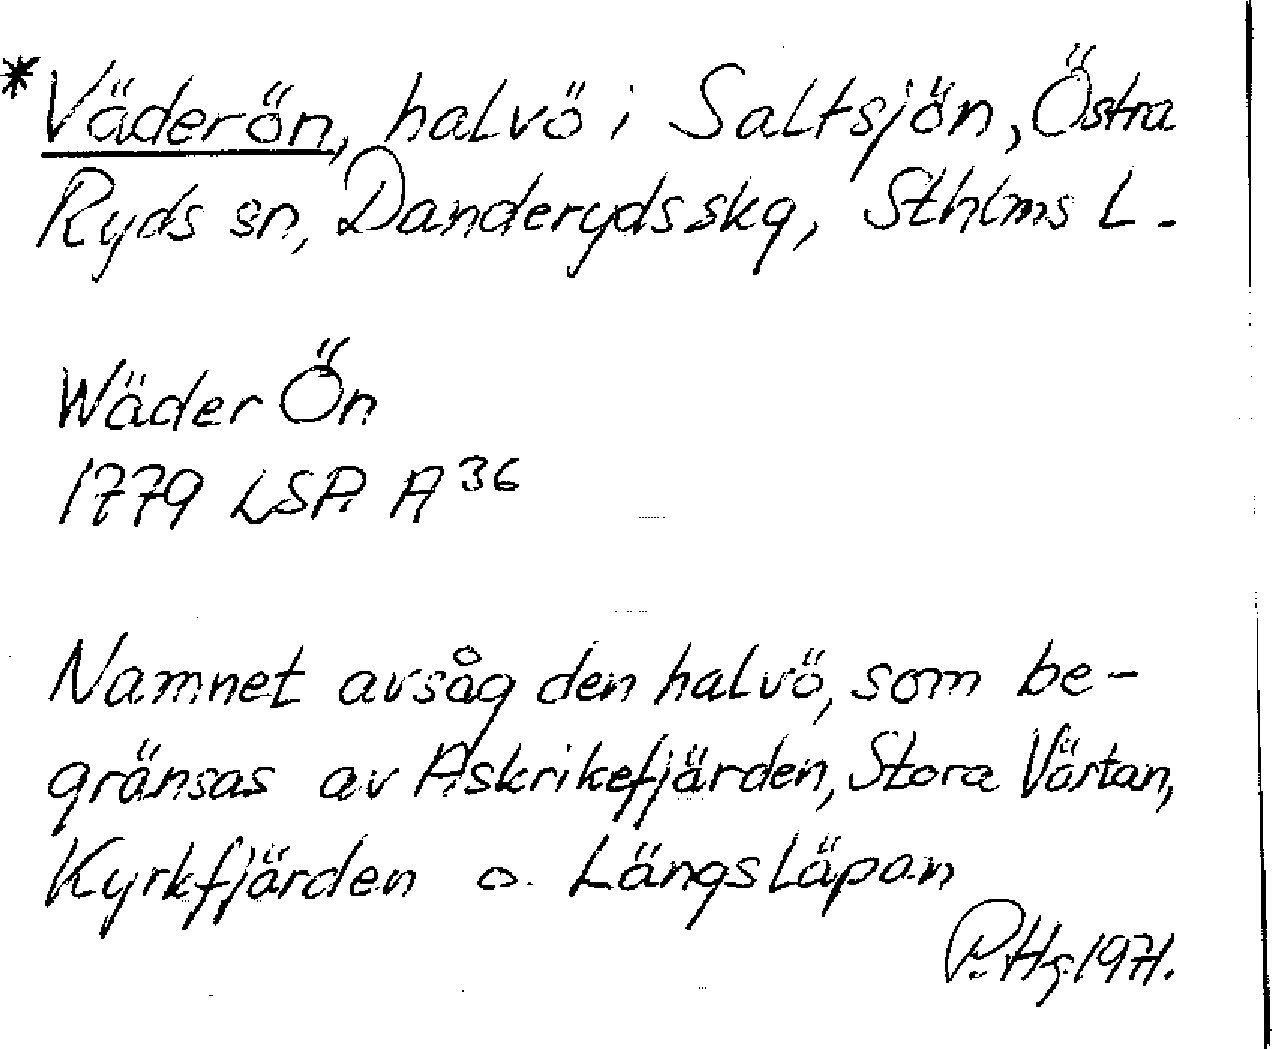 *Väderön, halvö i Saltsjön, Östra
Ryds sn, Danderyds skg, Sthlms L.
Wäder Ön
1779 LSA A³⁶
Namnet avsåg den halvö, som be-
gränsas av Askrikefjärden, Stora Värtan,
Kyrkfjärden o. Långsläpan
P. Hg 1971.